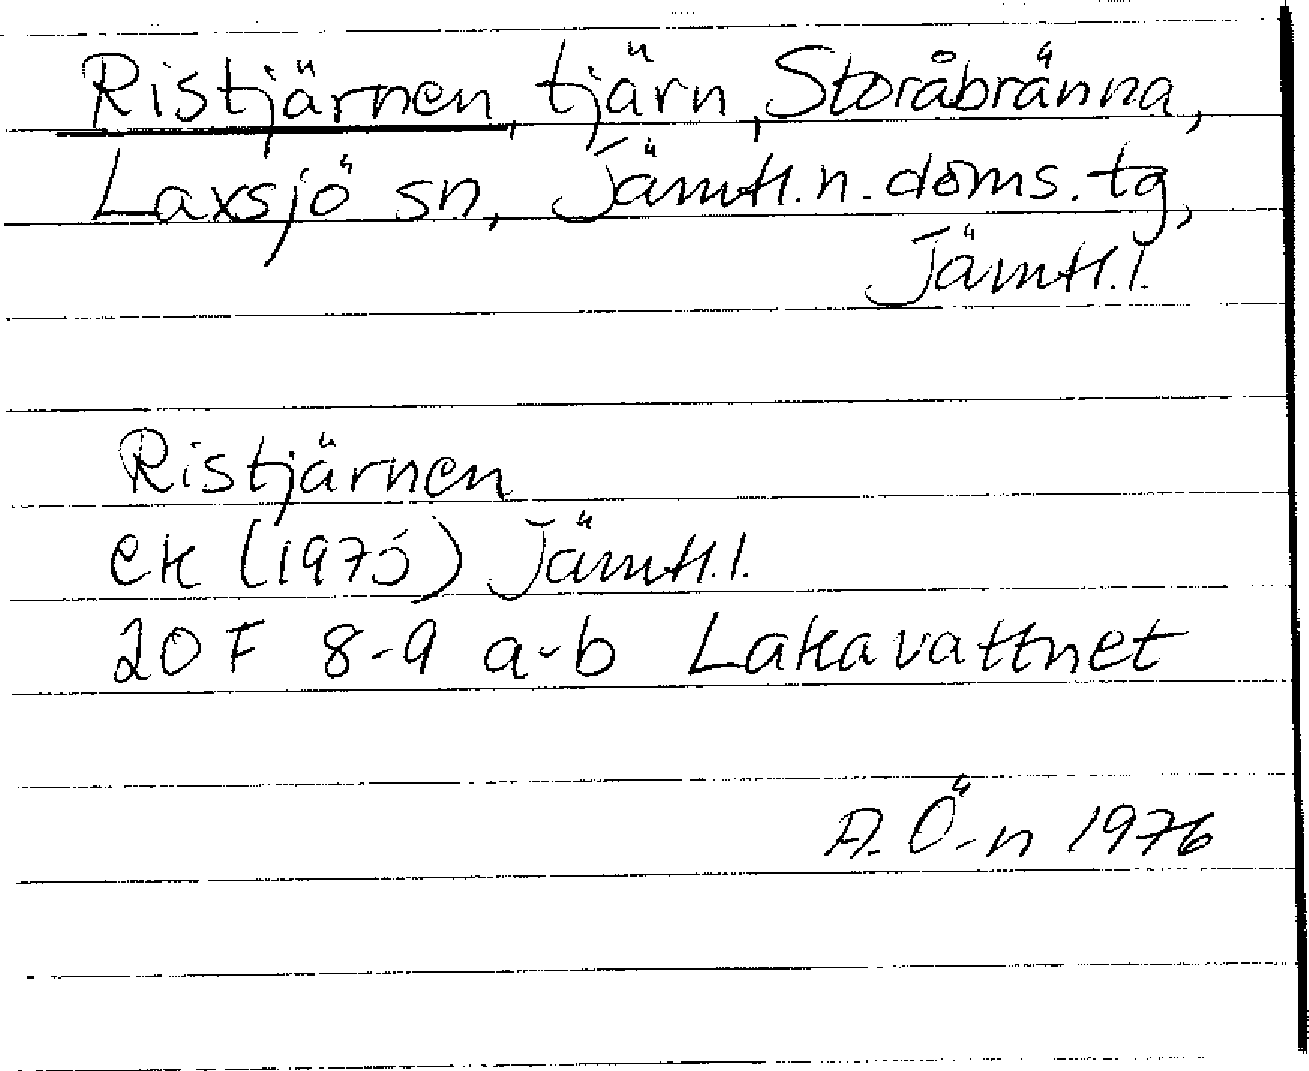 Ristjärnen, tjärn, Storåbränna,
Laxsjö sn, Jämtl. n. doms. tg,
Jämtl. l.
Ristjärnen
ek (1975) Jämtl. l.
20 F 8-9 a-b Lakavattnet
A. Ö-n 1976